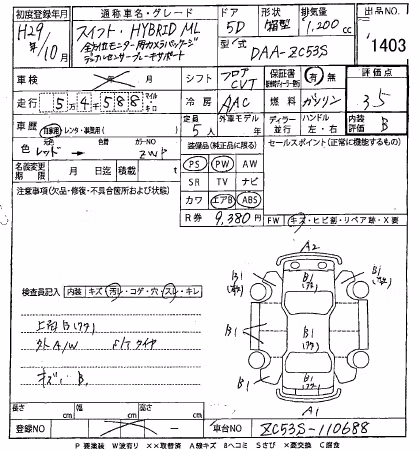 初度登録年月 通称車名・グレード ドア 形状 排気量 出品NO.
H29年10月 スイフト・HYBRID ML 5D 箱型 1,200cc 1403
全方位モニター用カメラパッケージ
デュアルセンサーブレーキサポート
型式 DAA-ZC53S
車検 年 月 シフト フロアCVT 保証書 有・無 評価点
走行 5万4千588 マイル キロ 冷房 AAC 燃料 ガソリン 3.5
車歴 自家用・レンタ・事業用( ) 定員 5人 外車モデル年 ディラー・並行 ハンドル 左・右 内装評価 B
色 元色 レッド→ 色替 カラーNO ZWP 装備品(純正品に限る) セールスポイント(正常に機能するもの)
名義変更期限 月 日迄 積載 t PS PW AW
注意事項(欠品・修復・不具合箇所および状態) SR TV ナビ
カワ エアB ABS
R券 9,380円 FW キズ・ヒビ割・リペア跡・X要
A2
B1 B1 B1
検査員記入 内装 キズ・汚レ・コゲ・穴・スレ・キレ
B1 B1
A/W タイヤ
B1 B1 B1
キズ B.
長さ cm 幅 cm 高さ cm
A1
登録NO ー 車台NO ZC53S-110688
P 要塗装 W波有り ××取替済 A線キズ Bヘコミ Sさび ×要交換 C腐食